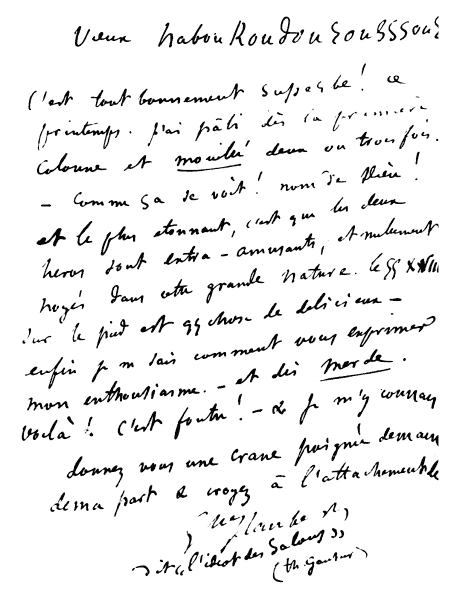 Vieux
C'est tout bonnement superbe! ce
printemps. j'ai pâli dès la première
colonne et mouillé deux ou trois fois.
– comme ça se voit! nom de Dieu!
et le plus étonnant, c'est que les deux
héros sont extra-amusants, et nullement
noyés dans cette grande nature. le §§ XXVIII
sur le pied est qq chose de délicieux –
enfin je ne sais comment vous exprimer
mon enthousiasme. – et dis merde.
voilà! c'est foutu! – & je m'y connais
donnez vous une crâne poignée de main
de ma part & croyez à l'attachement de
Gve Flaubert
dit « l'idiot des Salons »
(th. Gautier)